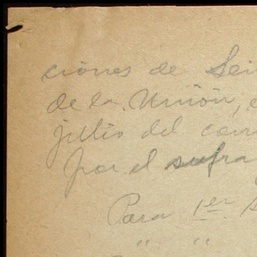 ciones de
de la Unión,
julio del
por el sufra
Para 1er
" "